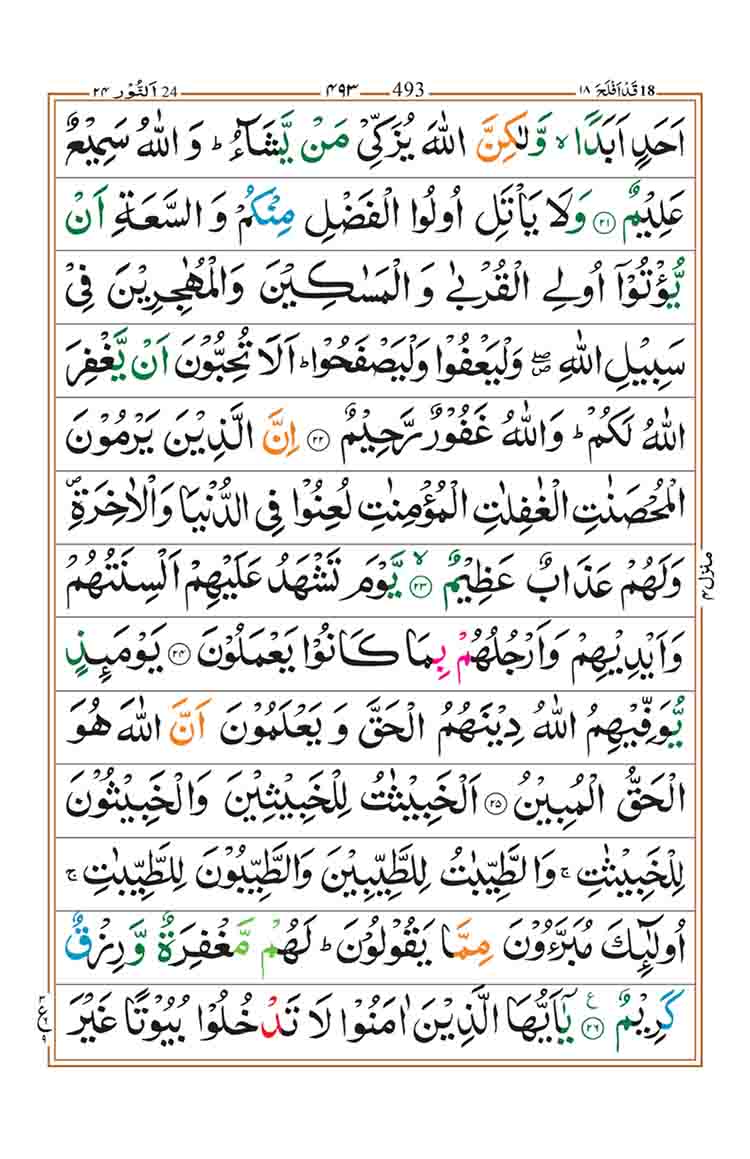 ١٨ قَدْ اَفْلَحَ 18 493 ۴۹۳ 24 اَلنُّوْر ۲۴
اَحَدٍ اَبَدًا ۙ وَّلٰكِنَّ اللّٰهَ يُزَكِّىْ مَنْ يَّشَآءُ ؕ وَ اللّٰهُ سَمِيْعٌ
عَلِيْمٌ ﴿۲۱﴾ وَلَا يَاْتَلِ اُولُوا الْفَضْلِ مِنْكُمْ وَ السَّعَةِ اَنْ
يُّؤْتُوْۤا اُولِى الْقُرْبٰى وَ الْمَسٰكِيْنَ وَالْمُهٰجِرِيْنَ فِىْ
سَبِيْلِ اللّٰهِ ۖ وَلْيَعْفُوْا وَلْيَصْفَحُوْا ؕ اَلَا تُحِبُّوْنَ اَنْ يَّغْفِرَ
اللّٰهُ لَكُمْ ؕ وَاللّٰهُ غَفُوْرٌ رَّحِيْمٌ ﴿۲۲﴾ اِنَّ الَّذِيْنَ يَرْمُوْنَ
الْمُحْصَنٰتِ الْغٰفِلٰتِ الْمُؤْمِنٰتِ لُعِنُوْا فِى الدُّنْيَا وَالْاٰخِرَةِ ۪
وَلَهُمْ عَذَابٌ عَظِيْمٌ ۙ ﴿۲۳﴾ يَّوْمَ تَشْهَدُ عَلَيْهِمْ اَلْسِنَتُهُمْ
وَاَيْدِيْهِمْ وَاَرْجُلُهُمْ بِمَا كَانُوْا يَعْمَلُوْنَ ﴿۲۴﴾ يَوْمَئِذٍ
يُّوَفِّيْهِمُ اللّٰهُ دِيْنَهُمُ الْحَقَّ وَ يَعْلَمُوْنَ اَنَّ اللّٰهَ هُوَ
الْحَقُّ الْمُبِيْنُ ﴿۲۵﴾ اَلْخَبِيْثٰتُ لِلْخَبِيْثِيْنَ وَالْخَبِيْثُوْنَ
لِلْخَبِيْثٰتِ ۚ وَالطَّيِّبٰتُ لِلطَّيِّبِيْنَ وَالطَّيِّبُوْنَ لِلطَّيِّبٰتِ ۚ
اُولٰٓئِكَ مُبَرَّءُوْنَ مِمَّا يَقُوْلُوْنَ ؕ لَهُمْ مَّغْفِرَةٌ وَّ رِزْقٌ
كَرِيْمٌ ﴿۲۶﴾ ع يٰۤاَيُّهَا الَّذِيْنَ اٰمَنُوْا لَا تَدْخُلُوْا بُيُوْتًا غَيْرَ
منزل ۴
ع ۹